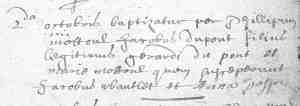 2da
octobris baptizatur per Phillippum
mottoul Jacobus Dupont filius
legitimus Gerardi du pont et
maria mottoul quem susceperunt
Jacobus et Anna